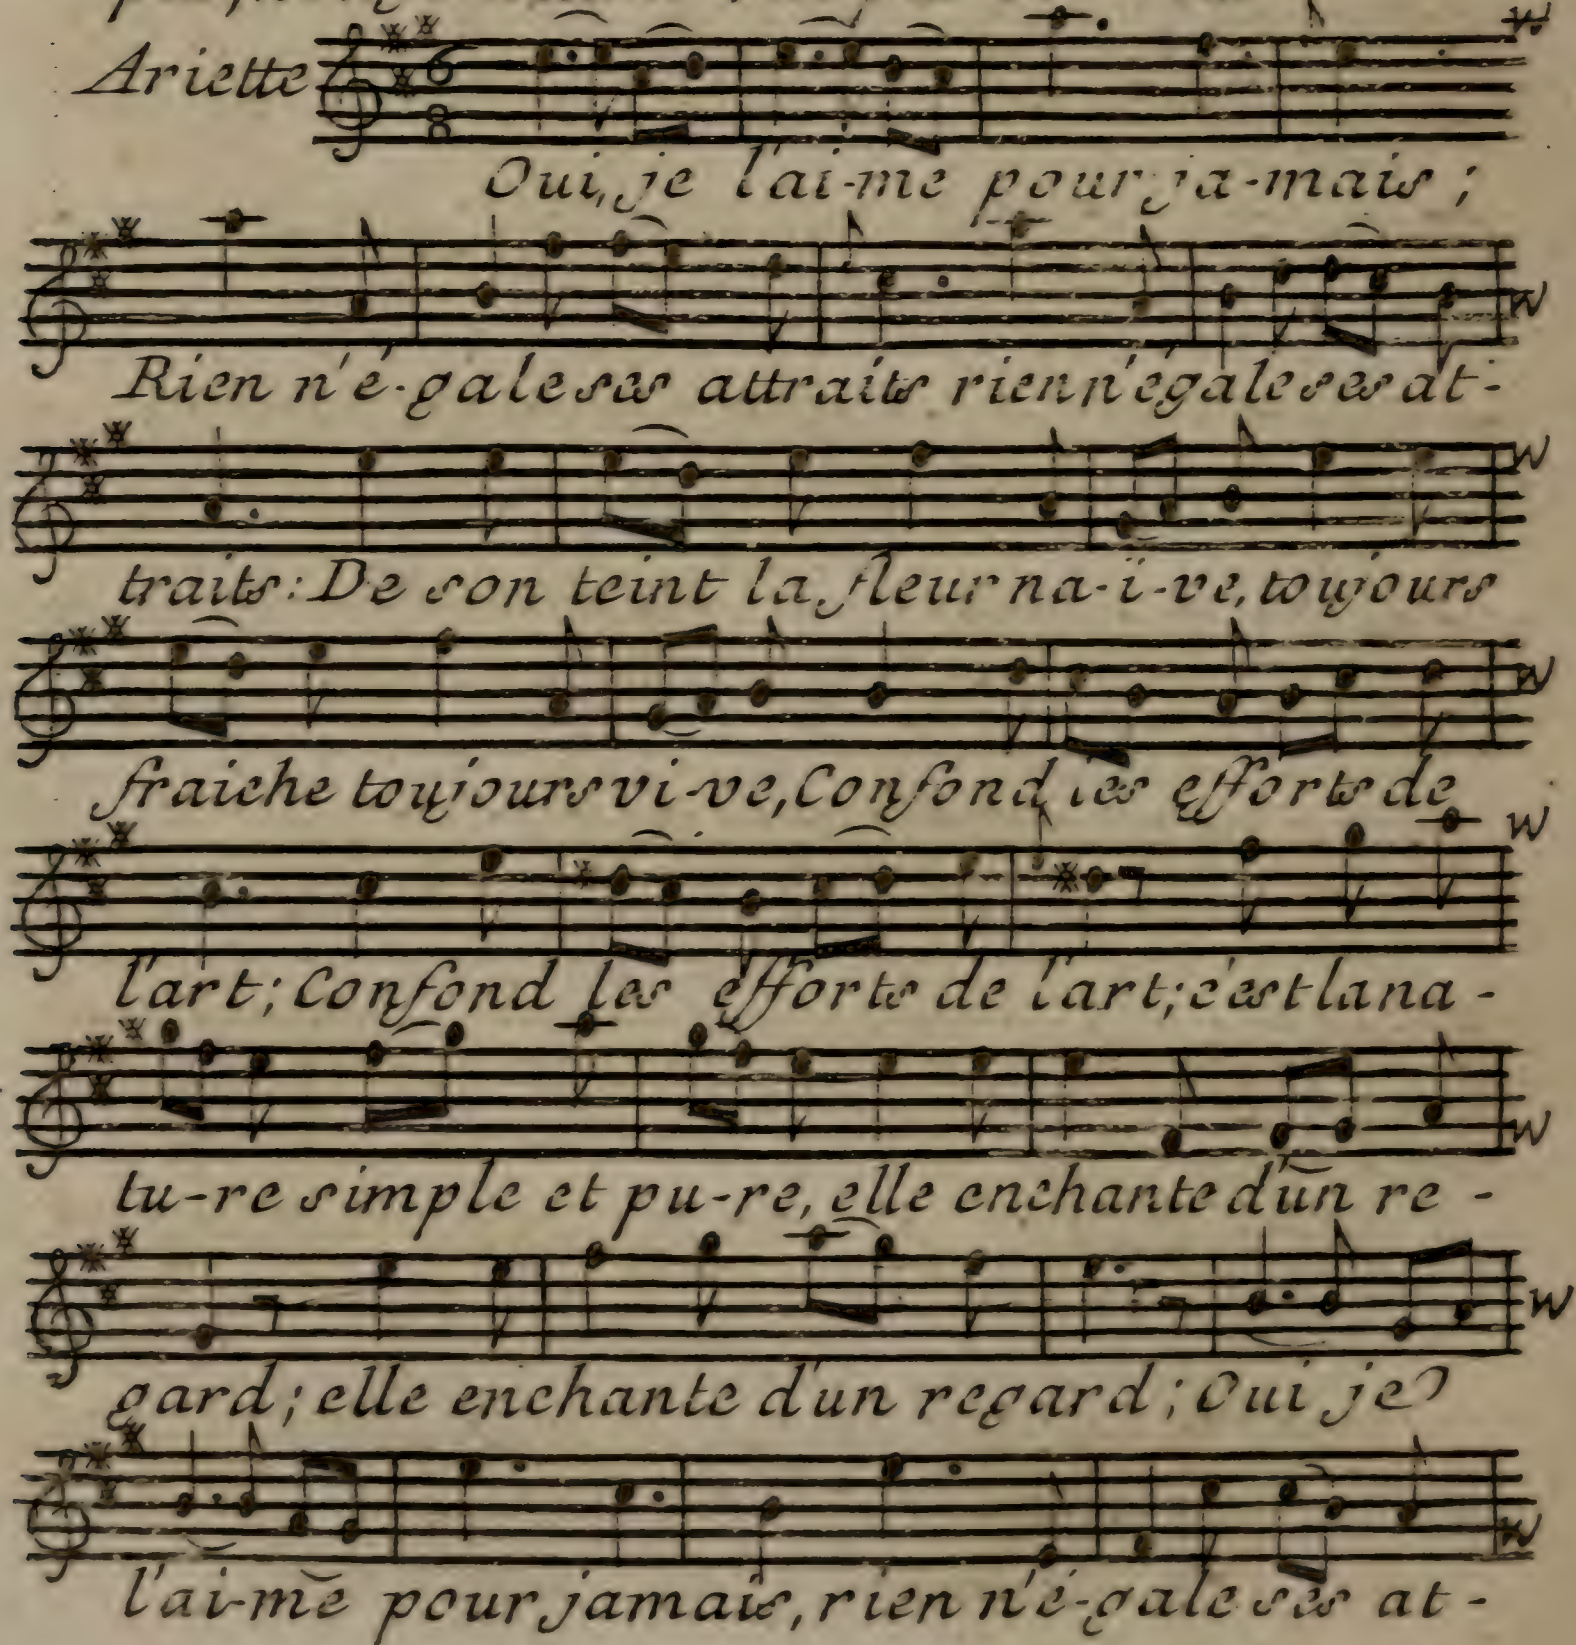 Ariette
Oui, je l'ai-me pour ja-mais ;
Rien n'é-gale ses attraits rien n'égale ses at-
traits: De son teint la fleur na-ï-ve, toujours
fraiche toujours vi-ve, Confond les efforts de
l'art; Confond les efforts de l'art; c'est la na-
tu-re simple et pu-re, elle enchante d'un re-
gard; elle enchante d'un regard; Oui je
l'ai-me pour jamais, rien n'é-gale ses at-